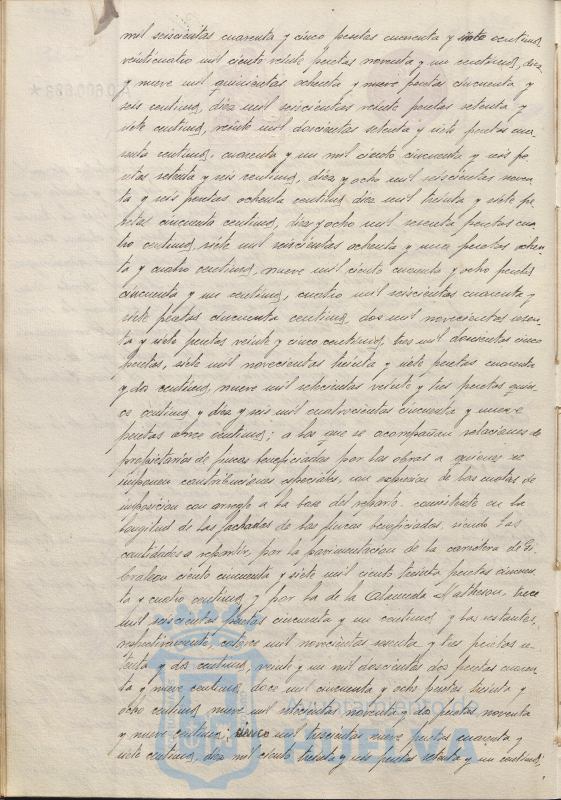 mil seiscientas cuarenta y cinco pesetas cuarenta y siete centimos,
veinticuatro mil ciento veinte pesetas noventa y un centimos, diez
y nueve mil quinientas ochenta y nueve pesetas cincuenta y
seis centimos, diez mil seiscientas veinte pesetas setenta y
siete centimos, veinte mil doscientas setenta y siete pesetas cua-
renta centimos, cuarenta y un mil ciento cincuenta y seis pe-
setas setenta y seis centimos, diez y ocho mil seiscientas noven-
ta y seis pesetas ochenta centimos diez mil treinta y siete pe-
setas cincuenta centimos, diez y ocho mil sesenta pesetas cua-
tro centimos, siete mil seiscientas ochenta y una pesetas ochen-
ta y cuatro centimos, nueve mil ciento cuarenta y ocho pesetas
cincuenta y un centimos, cuatro mil seiscientas cuarenta y
siete pesetas cincuenta centimos, dos mil novecientas
y siete pesetas veinte y cinco centimos, tres mil doscientas cinco
pesetas, siete mil novecientas treinta y siete pesetas cuarenta
y dos centimos, nueve mil setecientas veinte y tres pesetas quin-
ce centimos y diez y seis mil cuatrocientas cincuenta y nueve
pesetas once centimos; a las que se acompañan relaciones de
propietarios de fincas beneficiadas por las obras a quienes se
imponen contribuciones especiales, con expresion de las cuotas de
imposicion con arreglo a la base del reparto, consistente en la
longitud de las fachadas de las fincas beneficiadas, siendo las
cantidades a repartir, por la pavimentacion de la carretera de Gi-
braleon ciento cincuenta y siete mil ciento treinta pesetas cincuen-
ta y cuatro centimos y por la de la Alameda Matheson, trece
mil seiscientas pesetas cincuenta y un centimos, y las restantes,
respectivamente, catorce mil novecientas sesenta y tres pesetas se-
tenta y dos centimos, veinte y un mil doscientas dos pesetas cuaren-
ta y nueve centimos, doce mil cincuenta y ocho pesetas treinta y
ocho centimos nueve mil setecientas noventa y dos pesetas noventa
y nueve centimos, mil trescientas nueve pesetas cuarenta y
siete centimos, diez mil ciento treinta y seis pesetas setenta y un centimos,
Ayuntamiento de
HUELVA